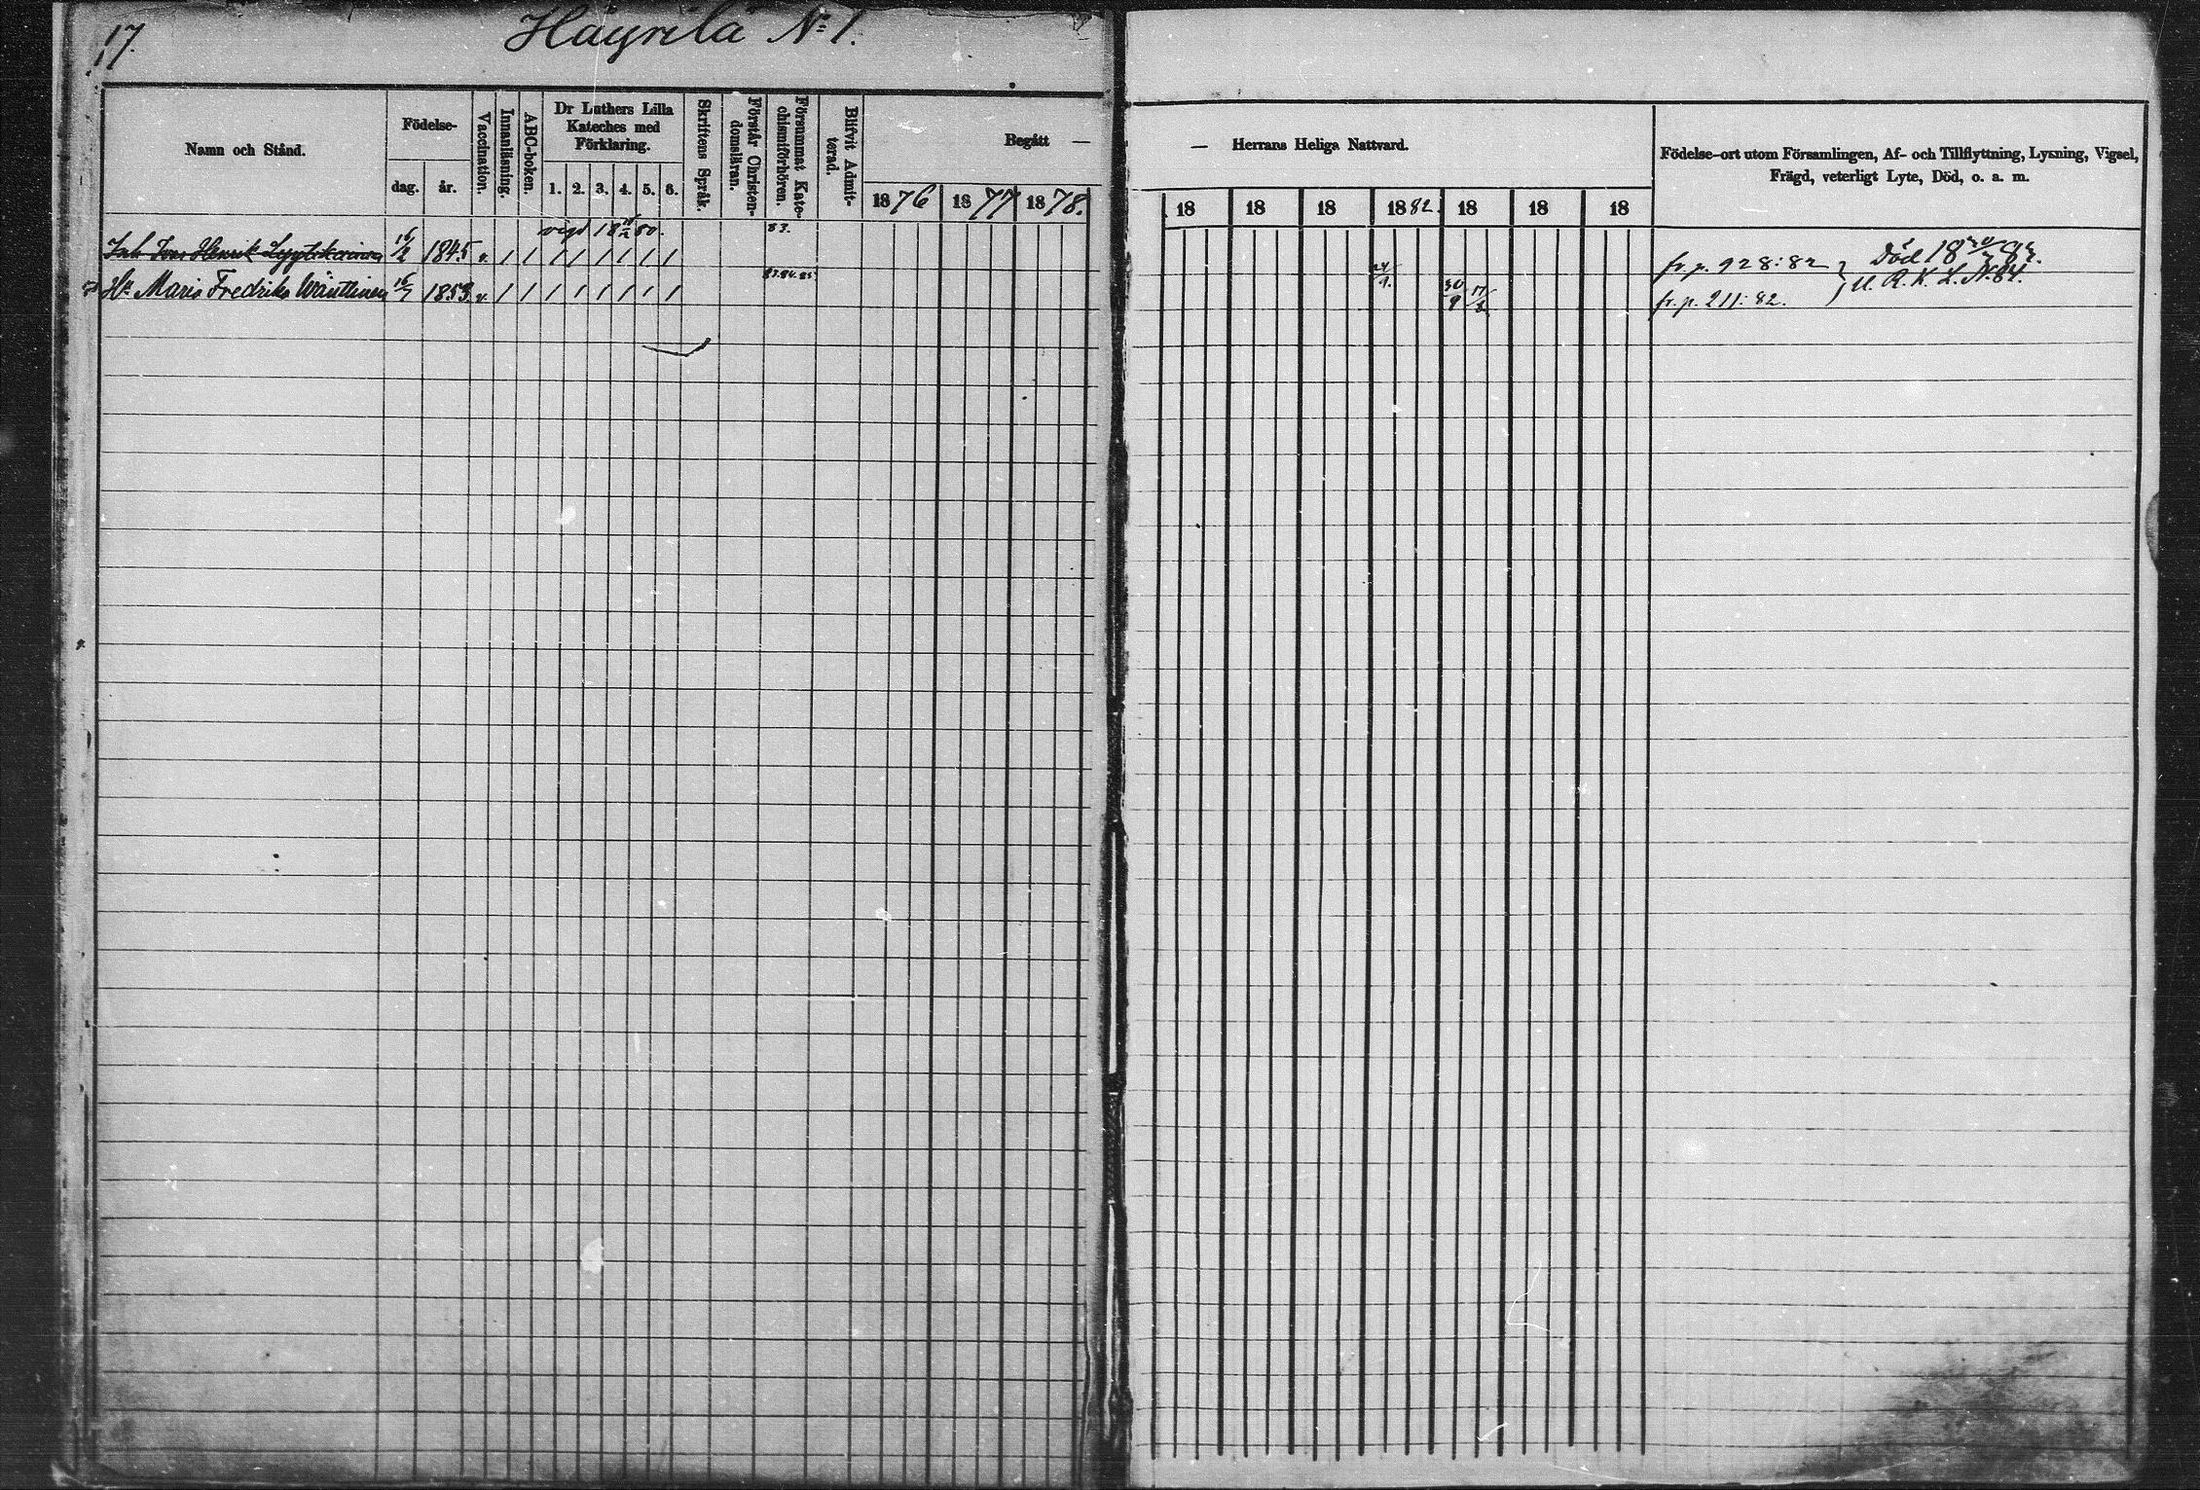 17.
Häyrilä No 1.
Namn och Stånd.
Födelse-
dag.
år.
Vaccination.
Innanläsning.
ABC-boken.
Dr Luthers Lilla
Kateches med
Förklaring.
1. 2. 3. 4. 5. 6.
Skriftens Språk.
Förstår Christen-
domsläran.
Försummat Kate-
chismiförhören.
Blifvit Admit-
terad.
Begått —
1876 1877 1878.
— Herrans Heliga Nattvard.
18 18 18 1882. 18 18 18
Födelse-ort utom Församlingen, Af- och Tillflyttning, Lysning, Vigsel,
Frägd, veterligt Lyte, Död, o. a. m.
vigd 18 80. 83.
Henrik 16/2 1845 v. / / / / / / / / 24/9. fr. p. 928:82 Död 18
Hu Maria Fredrika Wänttinen 16/7 1853 v. / / / / / / / / 83.84.85 30/9 fr. p. 211:82. U. R. K. L. N. 84.